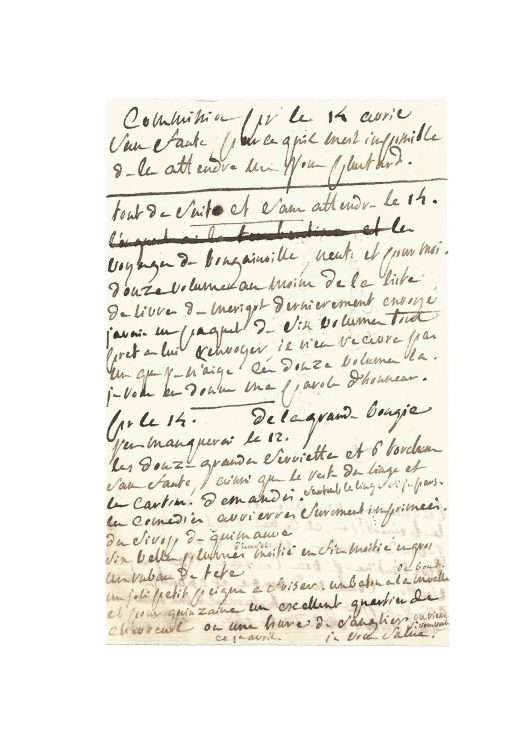 Commission pr le 14 avril
Sans faute, parce quil mest impossible
de le attendre un jour plus tard.
tout de suite et sans attendre le 14.
les
voyages de bougainville, neufs et pour moi.
douze volumes au moins de la liste
de livres de merigot dernierement envoyé
javais un paquet de six volumes tout
pret a lui renvoyer, je n'en recevrai pas
un que je n'aye les douze volumes la.
je vous en donne ma parole d'honneur.
pr le 14. de la grande bougie
j'en manquerai le 12.
les douze grandes serviettes et 6 torchons
sans faute, ainsi que le reste du linge et
les cartons demandés.
les comedies surement imprimées.
du sirop de guimauve
six belles plumes moitié en fin moitié en gros
un ruban de tete
un joli petit peigne a friser, un baton a la moelle
et pour quinzaine un excellent quartier de
chevreuil ou une hure de sanglier
ce avril. je vous salue.